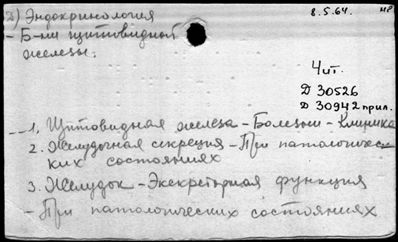 2) Эндокринология
8.5.64.
– Б-ни щитовидной
железы.
Чит.
Д 30526
Д 30942 прил.
1. Щитовидная железа – Болезни – Клиника
2. Желудочная секреция – При патологичес-
ких состояниях
3. Желудок – Экскреторная функция
– При патологических состояниях